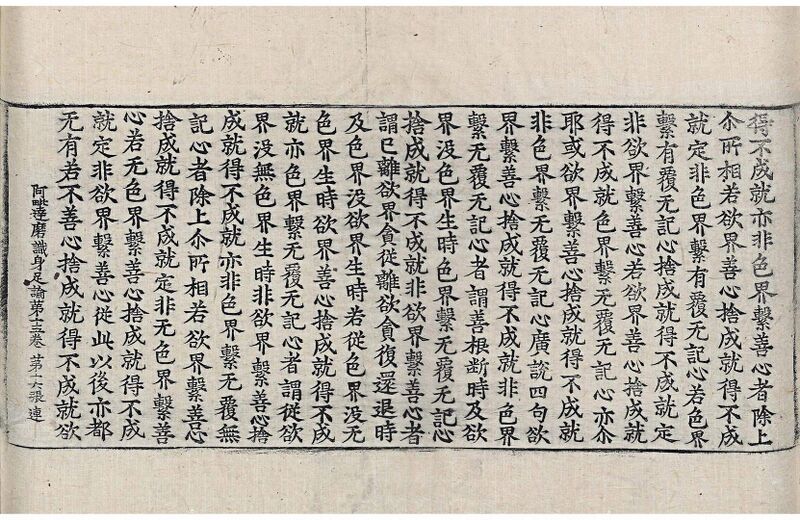 得不成就亦非色界繫善心者除上
尒所相若欲界善心捨成就得不成
就定非色界繫有覆无記心若色界
繫有覆无記心捨成就得不成就定
非欲界繫善心若欲界善心捨成就
得不成就色界繫无覆无記心亦尒
耶或欲界繫善心捨成就得不成就
非色界繫无覆无記心廣說四句欲
界繫善心捨成就得不成就非色界
繫无覆无記心者謂善根斷時及欲
界没色界生時色界繫无覆无記心
捨成就得不成就非欲界繫善心者
謂已離欲界貪從離欲貪復還退時
及色界没欲界生時若從色界没无
色界生時欲界善心捨成就得不成
就亦色界繫无覆无記心者謂從欲
界没無色界生時非欲界繫善心捨
成就得不成就亦非色界繫无覆無
記心者除上尒所相若欲界繫善心
捨成就得不成就定非无色界繫善
心若无色界繫善心捨成就得不成
就定非欲界繫善心從此以後亦都
无有若不善心捨成就得不成就欲
阿毗達磨識身足論第十三卷 苐十六張 連